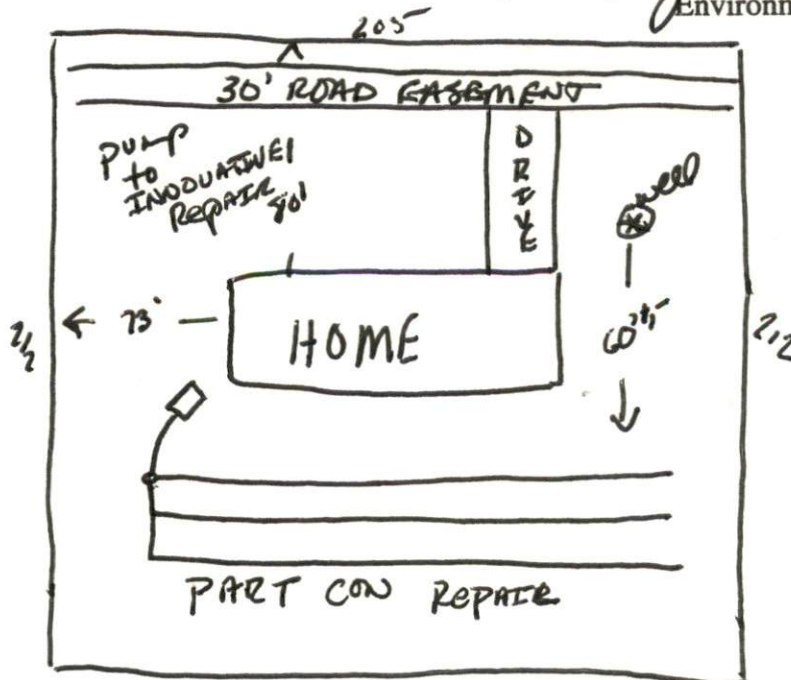 Environm
205
30' ROAD EASEMENT
PUMP
to
INNOVATIVE
REPAIR
80'
DRIVE
well
73'
HOME
60
PART CON REPAIR